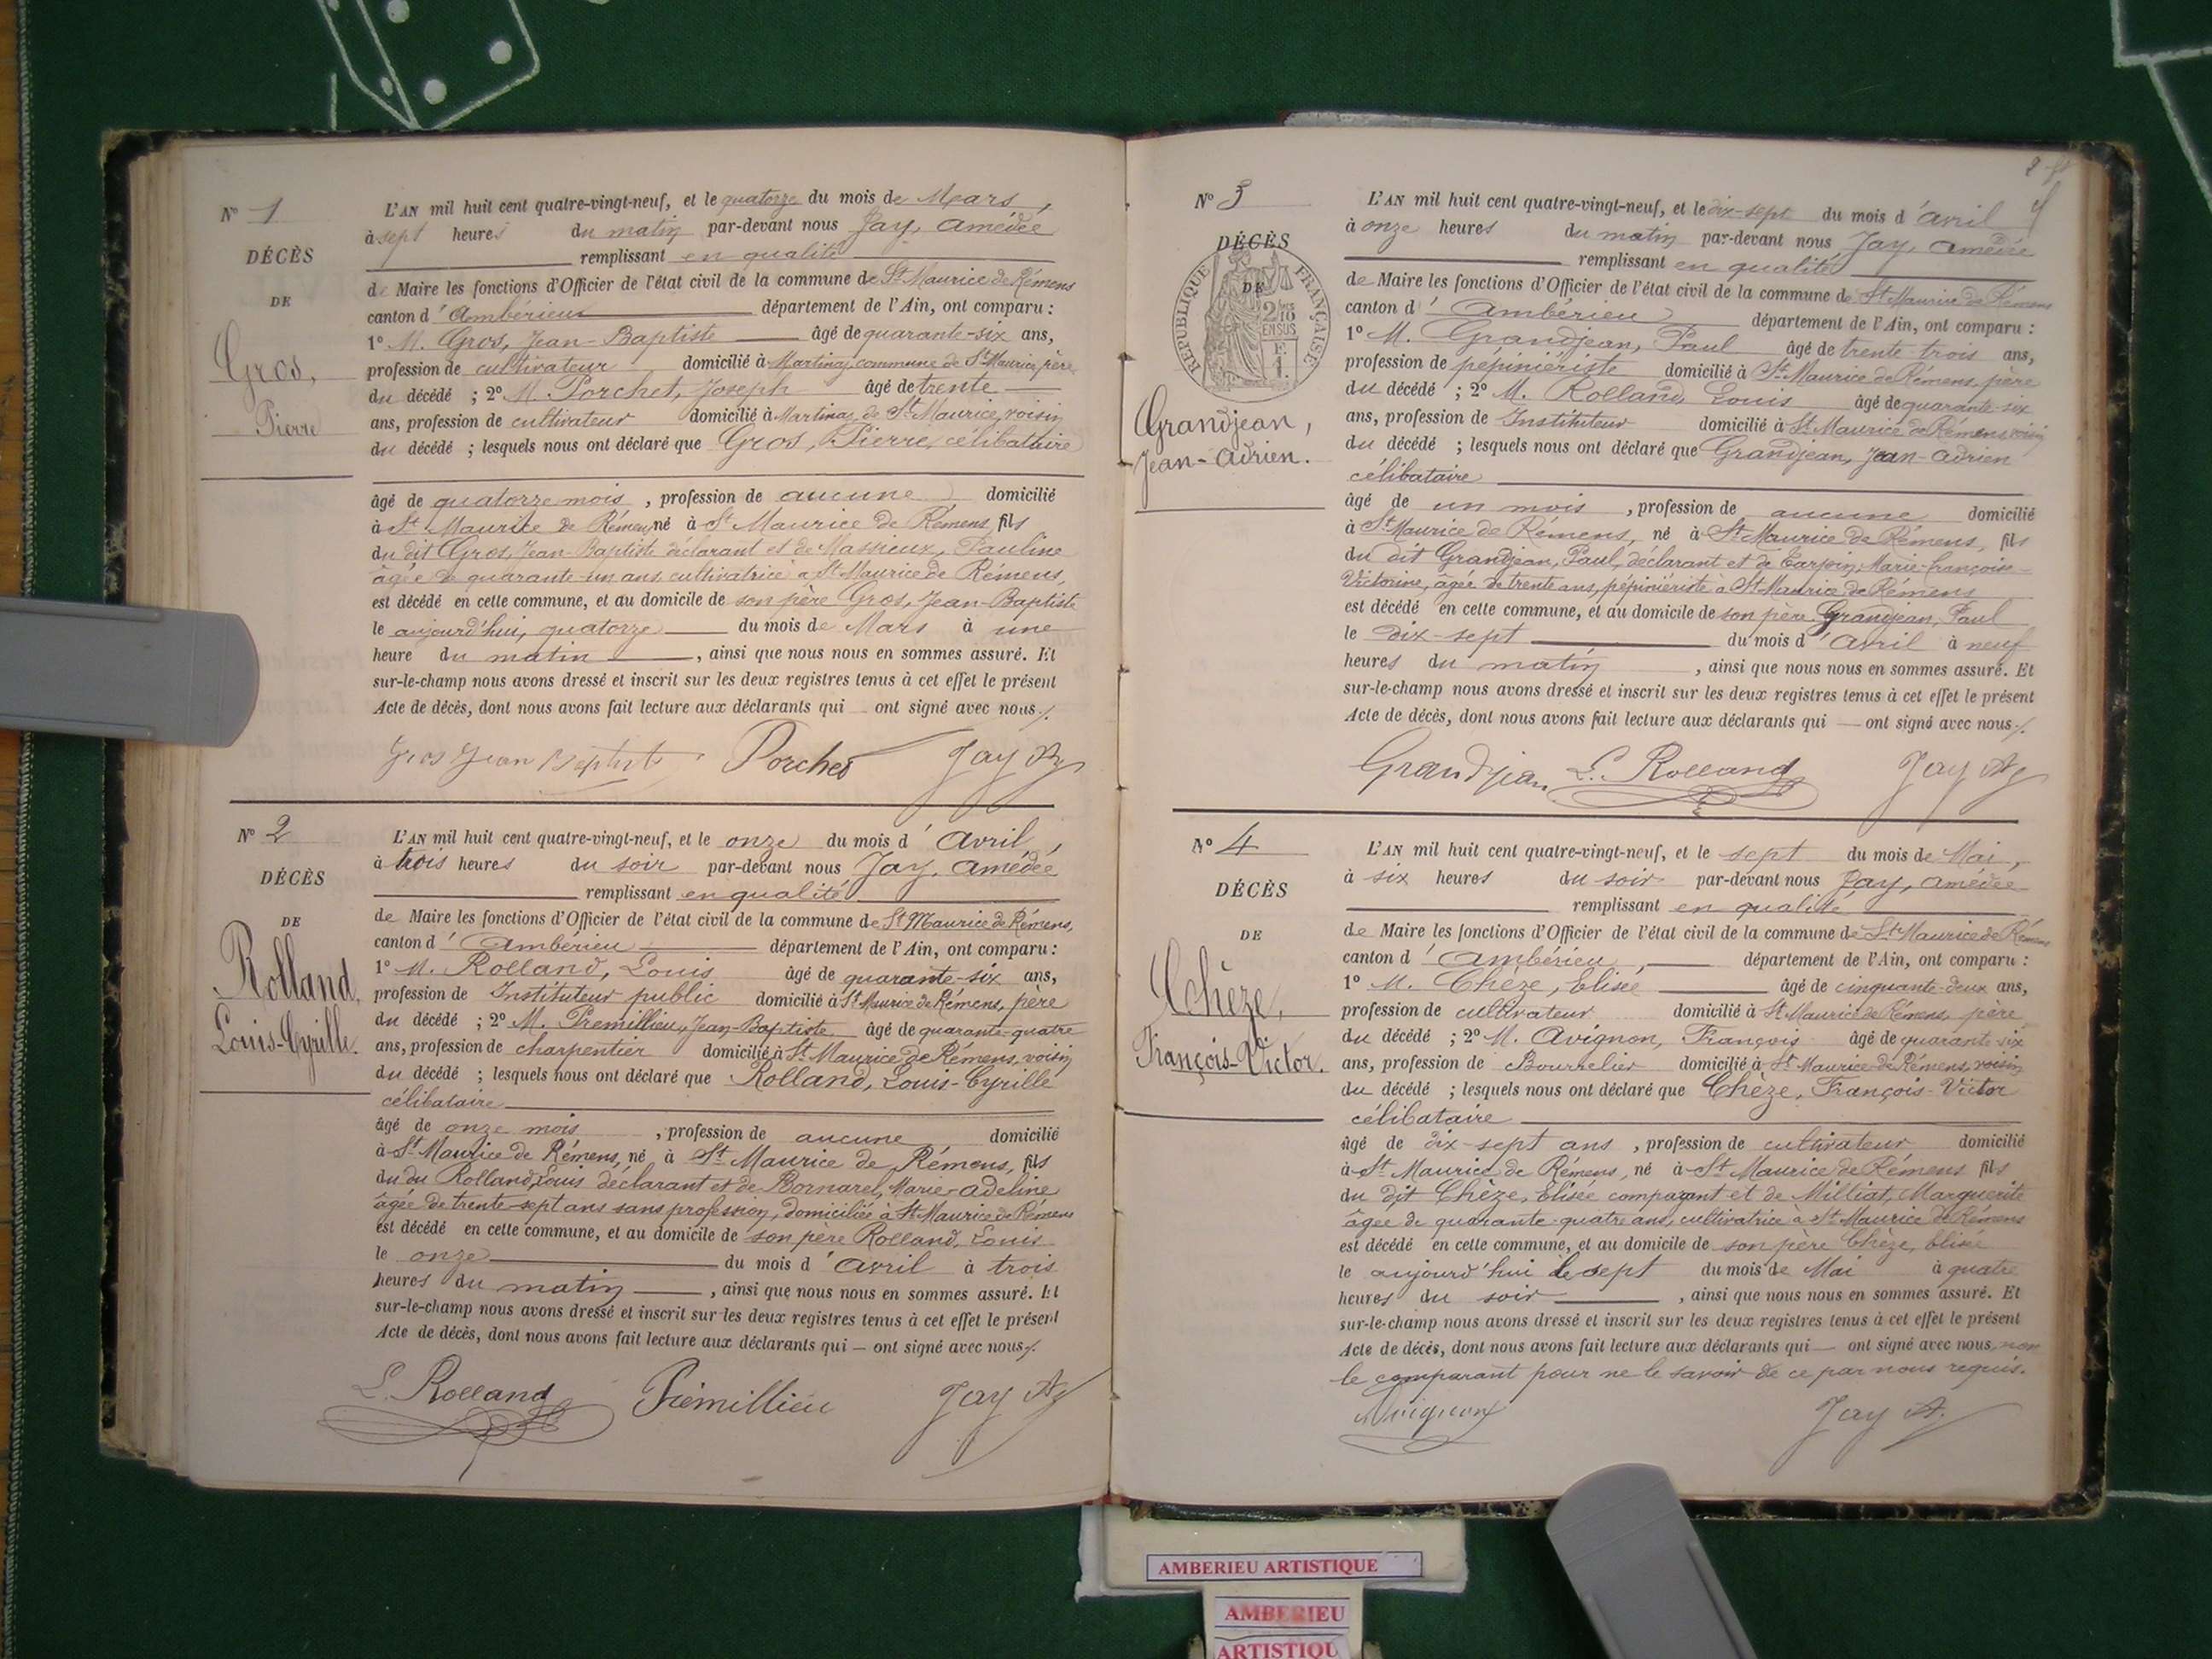 N° 1
DÉCÈS
DE
Gros,
Pierre
L'AN mil huit cent quatre-vingt-neuf, et le quatorze du mois de Mars,
à sept heures du matin par-devant nous Jay, Amédée
remplissant en qualité
de Maire les fonctions d'Officier de l'état civil de la commune de St Maurice de Rémens
canton d'Ambérieu département de l'Ain, ont comparu :
1° M. Gros, Jean-Baptiste âgé de quarante-six ans,
profession de cultivateur domicilié à Martinaz commune de St Maurice, père
du décédé ; 2° M. Porchet, Joseph âgé de trente
ans, profession de cultivateur domicilié à Martinaz de St Maurice, voisin
du décédé ; lesquels nous ont déclaré que Gros, Pierre, célibataire
âgé de quatorze mois, profession de aucune domicilié
à St Maurice de Rémens né à St Maurice de Rémens, fils
du dit Gros, Jean-Baptiste déclarant et de Massieux, Pauline
âgée de quarante-un ans cultivatrice à St Maurice de Rémens,
est décédé en cette commune, et au domicile de son père Gros, Jean-Baptiste
le aujourd'hui, quatorze du mois de Mars à une
heure du matin, ainsi que nous nous en sommes assuré. Et
sur-le-champ nous avons dressé et inscrit sur les deux registres tenus à cet effet le présent
Acte de décès, dont nous avons fait lecture aux déclarants qui ont signé avec nous./.
Gros Jean Baptiste Porchet Jay A
N° 2
DÉCÈS
DE
Rolland,
Louis-Cyrille.
L'AN mil huit cent quatre-vingt-neuf, et le onze du mois d'Avril,
à trois heures du soir par-devant nous Jay, Amédée
remplissant en qualité
de Maire les fonctions d'Officier de l'état civil de la commune de St Maurice de Rémens,
canton d'Ambérieu département de l'Ain, ont comparu :
1° M. Rolland, Louis âgé de quarante-six ans,
profession de Instituteur public domicilié à St Maurice de Rémens, père
du décédé ; 2° M. Premillieu, Jean-Baptiste âgé de quarante-quatre
ans, profession de charpentier domicilié à St Maurice de Rémens, voisin
du décédé ; lesquels nous ont déclaré que Rolland, Louis-Cyrille
célibataire
âgé de onze mois, profession de aucune domicilié
à St Maurice de Rémens, né à St Maurice de Rémens, fils
du du Rolland, Louis déclarant et de Bornarel, Marie-Adeline
âgée de trente-sept ans sans profession, domiciliée à St Maurice de Rémens
est décédé en cette commune, et au domicile de son père Rolland, Louis
le onze du mois d'Avril à trois
heures du matin, ainsi que nous nous en sommes assuré. Et
sur-le-champ nous avons dressé et inscrit sur les deux registres tenus à cet effet le présent
Acte de décès, dont nous avons fait lecture aux déclarants qui — ont signé avec nous./.
L. Rolland Prémillieu Jay A
N° 3
DÉCÈS
DE
RÉPUBLIQUE FRANÇAISE
2/10
EN SUS
Grandjean,
Jean-Adrien.
L'AN mil huit cent quatre-vingt-neuf, et le dix-sept du mois d'Avril
à onze heures du matin par-devant nous Jay, Amédée
remplissant en qualité
de Maire les fonctions d'Officier de l'état civil de la commune de St Maurice de Rémens
canton d'Ambérieu département de l'Ain, ont comparu :
1° M. Grandjean, Paul âgé de trente-trois ans,
profession de pépiniériste domicilié à St Maurice de Rémens, père
du décédé ; 2° M. Rolland, Louis âgé de quarante-six
ans, profession de Instituteur domicilié à St Maurice de Rémens, voisin
du décédé ; lesquels nous ont déclaré que Grandjean, Jean-Adrien
célibataire
âgé de un mois, profession de aucune domicilié
à St Maurice de Rémens, né à St Maurice de Rémens, fils
du dit Grandjean, Paul, déclarant et de Marie-Françoise-
Victorine, âgée de trente ans, pépiniériste à St Maurice de Rémens
est décédé en cette commune, et au domicile de son père Grandjean, Paul
le dix-sept du mois d'Avril à neuf
heures du matin, ainsi que nous nous en sommes assuré. Et
sur-le-champ nous avons dressé et inscrit sur les deux registres tenus à cet effet le présent
Acte de décès, dont nous avons fait lecture aux déclarants qui — ont signé avec nous./.
Grandjean L. Rolland Jay A
N° 4
DÉCÈS
DE
Chèze,
François-Victor.
L'AN mil huit cent quatre-vingt-neuf, et le sept du mois de Mai,
à six heures du soir par-devant nous Jay, Amédée
remplissant en qualité
de Maire les fonctions d'Officier de l'état civil de la commune de St Maurice de Rémens
canton d'Ambérieu, département de l'Ain, ont comparu :
1° M. Chèze, Elisée âgé de cinquante-deux ans,
profession de cultivateur domicilié à St Maurice de Rémens, père
du décédé ; 2° M. Avignon, François âgé de quarante-six
ans, profession de Bourrelier domicilié à St Maurice de Rémens, voisin
du décédé ; lesquels nous ont déclaré que Chèze, François-Victor
célibataire
âgé de dix-sept ans, profession de cultivateur domicilié
à St Maurice de Rémens, né à St Maurice de Rémens fils
du dit Chèze, Elisée comparant et de Milliat, Marguerite
âgée de quarante-quatre ans, cultivatrice à St Maurice de Rémens
est décédé en cette commune, et au domicile de son père Chèze, Elisée
le aujourd'hui le sept du mois de Mai à quatre
heures du soir, ainsi que nous nous en sommes assuré. Et
sur-le-champ nous avons dressé et inscrit sur les deux registres tenus à cet effet le présent
Acte de décès, dont nous avons fait lecture aux déclarants qui — ont signé avec nous, non
le comparant pour ne le savoir de ce par nous requis.
Avignon Jay A.
AMBERIEU ARTISTIQUE
AMBERIEU
ARTISTIQU